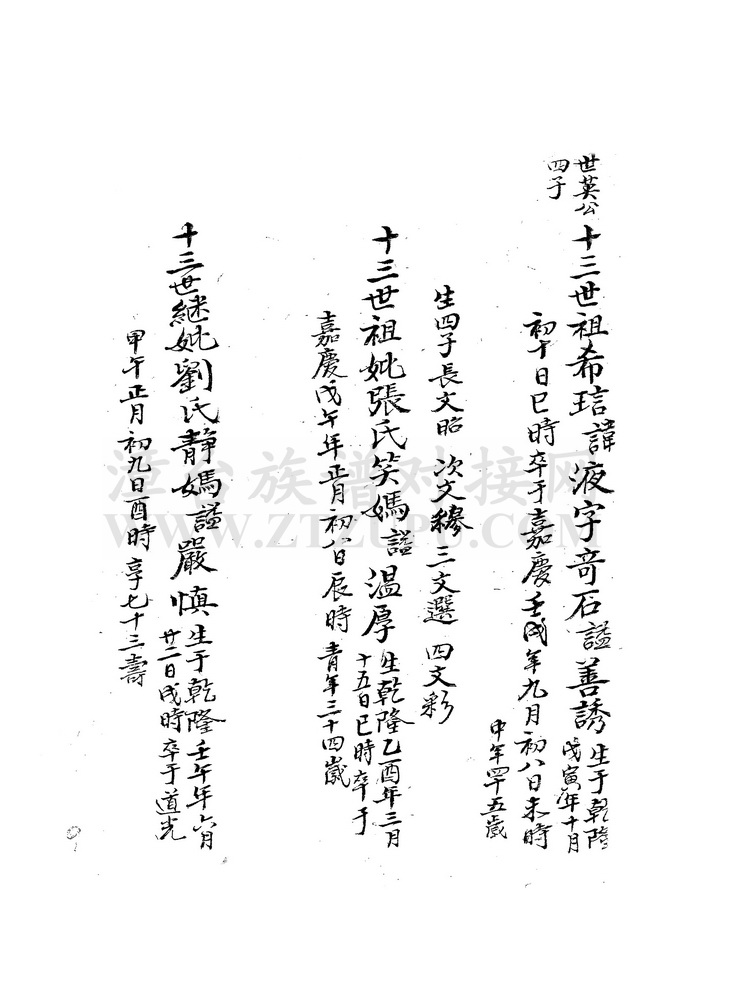 世英公
四子
十三世祖希琂諱液字奇石諡善誘生于乾隆
戊寅年十月
初十日巳時卒于嘉慶壬戌年九月初八日未時
中年四十五歲
生四子長文昭 次文穆 三文選 四文彩
十三世祖妣張氏笑媽諡溫厚生乾隆乙酉年三月
十五日巳時卒于
嘉慶戊午年正月初八日辰時 青年三十四歲
十三世継妣劉氏靜媽諡嚴慎生于乾隆壬午年六月
廿二日戌時卒于道光
甲午正月初九日酉時享七十三壽
漳台族谱对接网
WWW.ZTZUPU.COM